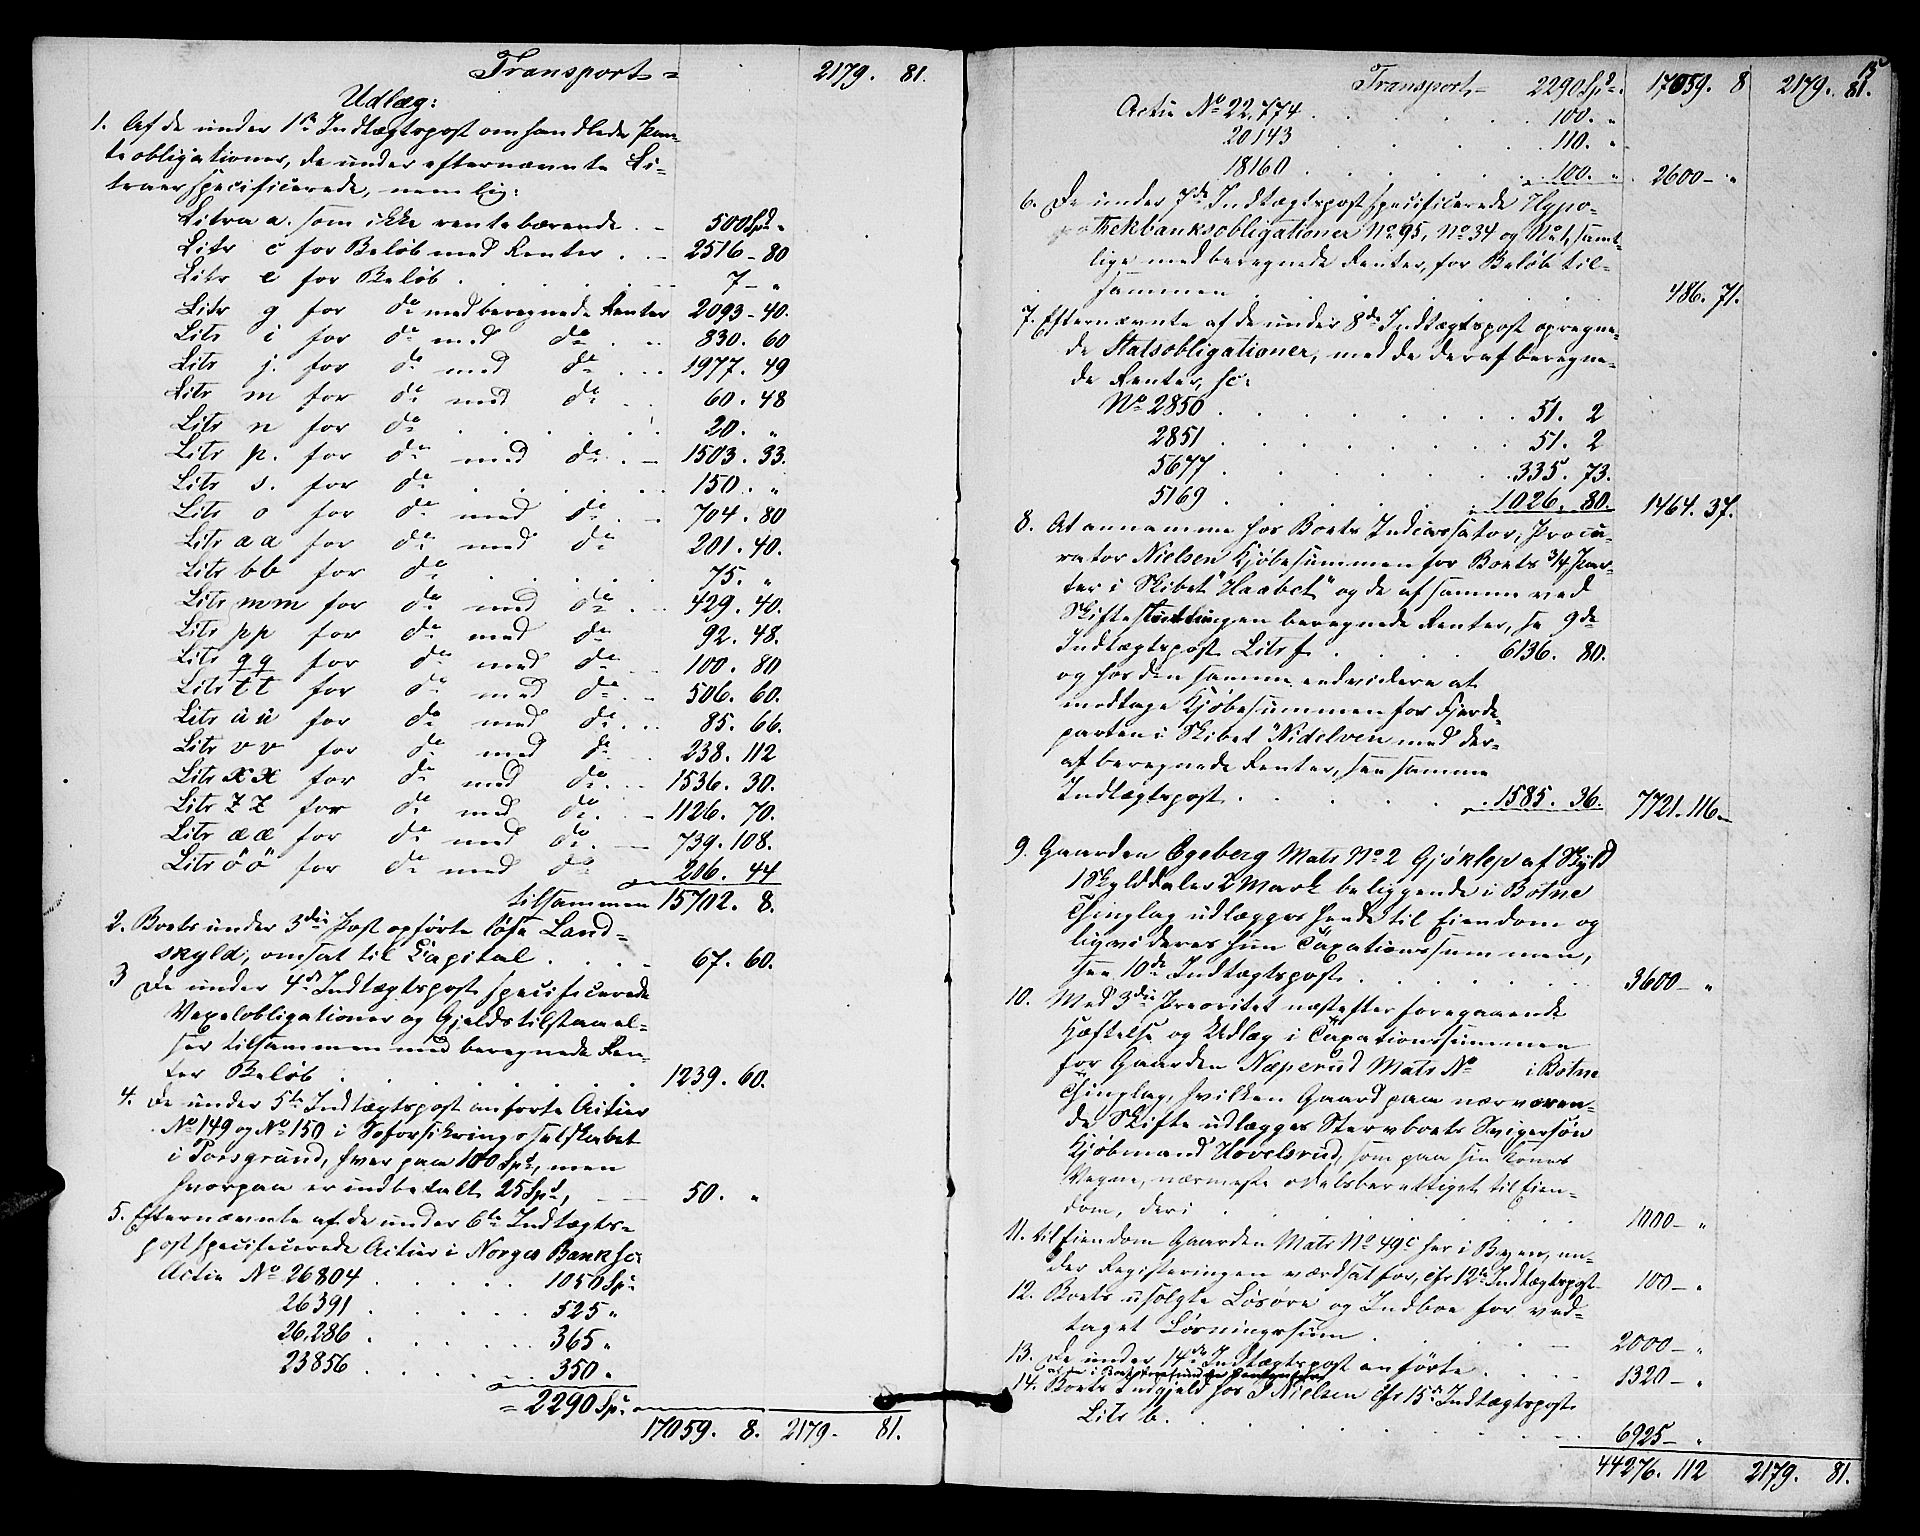 Transport = 2179. 81.
Udlæg:
1. Af de under 1ste Indtægtspost omhandlede Pan-
teobligationer, de under efternævnte Li-
traer specificerede, nemlig:
Litra a. som ikke rentebærende . – 500 Spd „
Litr c for Beløb med Renter . . – 2516 – 80
Litr e for Beløb . . . . . – 7 – „
Litr g for do med beregnede Renter 2093 – 40.
Litr i for do med do . . . 830. 60
Litr j. for do med do . . . 1977. 49
Litr m for do med do . . 60. 48
Litr n for do . . . . . . 20. „
Litr p. for do med do . – 1503. 33.
Litr s. for do . . . . . . 150. „
Litr o for do med do . – 704. 80
Litr aa for do med do 201. 40.
Litr bb for do . . . . . 75. „
Litr mm for do med do . . 429. 40.
Litr pp for do med do 92. 48.
Litr qq for do med do . 100. 80
Litr tt for do med do . – 506. 60.
Litr uu for do med do . . 85. 66.
Litr vv for do med do . . 238. 112
Litr xx for do med do . . . 1536. 30.
Litr zz for do med do . – 1126. 70.
Litr ææ for do med do . – 739. 108.
Litr öö for do med do 206. 44
tilsammen 15702. 8.
2. Boets under 3die Post opførte løse Land-
skyld, omsat til Capital . . . . 67. 60.
3 De under 4de Indtægtspost specificerede
Vexelobligationer og Gjeldstilstaael-
ser tilsammen med beregnede Ren-
ter Beløb . . . . . . . . 1239. 60.
4. De under 5te Indtægtspost anførte Actier
No 149 og No 150 i Søforsikringsselskabet
i Porsgrund, hver paa 100 Spd, men
hvorpaa er indbetalt 25 Spd, – 50. „
5. Efternævnte af de under 6te Indtægts-
post specificerede Actier i Norges Bank sc:
Actie No 26804 . . . . . 1050 Spd
26391 . . . . . 525 „
26,286 . . . . . 365 „
23856 . . . . . 350 „
= 2290 Spd
17059. 8. 2179. 81.
15
Transport – 2290 Spd. 17059. 8 2179. 81.
Actie No 22,774 . . . . . 100. „
20143 . . . . . 110. „
18160 . . . . . 100. „ 2600 – „
6. De under 7de Indtægtspost specificerede Hypo-
thekbanksobligationer No 95, No 34 og No 1, samt-
lige med beregnede Renter, for Beløb til-
sammen . . . . . . . . 486. 71.
7. Efternævnte af de under 8de Indtægtspost opregne-
de Statsobligationer, med de deraf beregne-
de Renter, sc:
No 2850 . . . . . . . 51. 2
2851 . . . . . . . 51. 2
5677 . . . . . . . 335. 73.
5169 . . . . . . . 1026. 80. 1464. 37.
8. At annamme hos Boets Indcassator, Procu-
rator Nielsen Kjøbesummen for Boets 3/4 Par-
ter i Skibet "Haabet" og de af samme ved
Skifteslutningen beregnede Renter, se 9de
Indtægtspost Litr f . . . . 6136. 80.
og hos den samme endvidere at
modtage Kjøbesummen for Fjerde-
parten i Skibet "Nidelven med der-
af beregnede Renter, see samme
Indtægtspost . . . . . . . 1585. 36. 7721. 116 –
9. Gaarden Egeberg Matr No 2 Gjøklep af Skyld
1 Skylddaler 2 Mark beliggende i Botne
Thinglag udlægges hende til Eiendom og
liqvideres hun Taxationssummen,
see 10de Indtægtspost . . . . . . 3600 – „
10. Med 3die Prioritet næstefter foregaaende
Hæftelse og Udlæg i Taxationssummen
for Gaarden Næperud Matr No i Botne
Thinglag, hvilken Gaard paa nærværen-
de Skifte udlægges Stervboets Svigersøn
Kjøbmand Hovelsrud, som paa sin Kones
Vegne, nærmeste odelsberettiget til Eien-
dom, deri . . . . . . . . . 1000 – „
11. til Eiendom Gaarden Matr No 49c her i Byen, un-
der Registeringen værdsat for, cfr 12te Indtægtspost 100 – „
12. Boets usolgte Løsøre og Indboe for ved-
taget Løsningssum . . . . . – 2000 – „
13. De under 14de Indtægtspost anførte . . . . 1320 – „
14. Boets Indgjeld hos P Nielsen cfr 15de Indtægtspost
Litr b. . . . . . . . . 6925 – „
44276. 112 2179. 81.